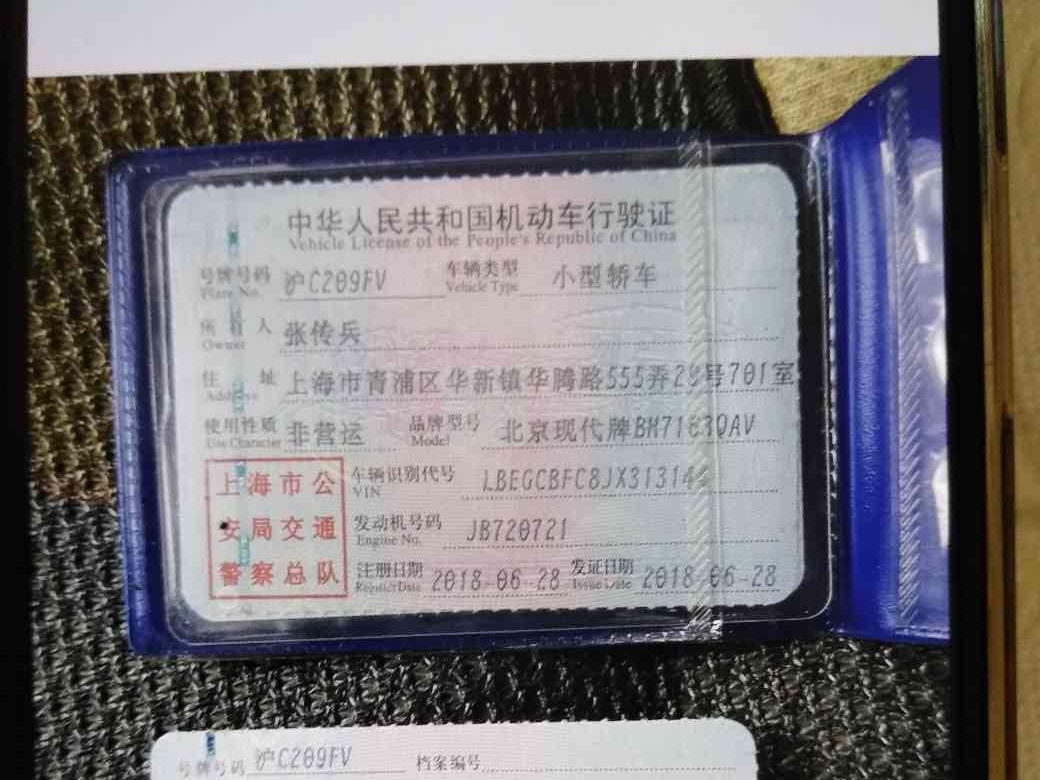 中华人民共和国机动车行驶证
Vehicle License of the People's Republic of China
号牌号码 沪C209FV 车辆类型 小型轿车
Plate No. Vehicle Type
所有人 张传兵
Owner
住址 上海市青浦区华新镇华腾路555弄 号701室
Address
使用性质 非营运 品牌型号 北京现代牌BH7163QAV
Use Character Model
上海市公 车辆识别代号 LBEGCBFC8JX31314
VIN
安局交通 发动机号码 JB720721
Engine No.
警察总队 注册日期 2018-06-28 发证日期 2018-06-28
Register Date Issue Date
号牌号码 沪C209FV 档案编号